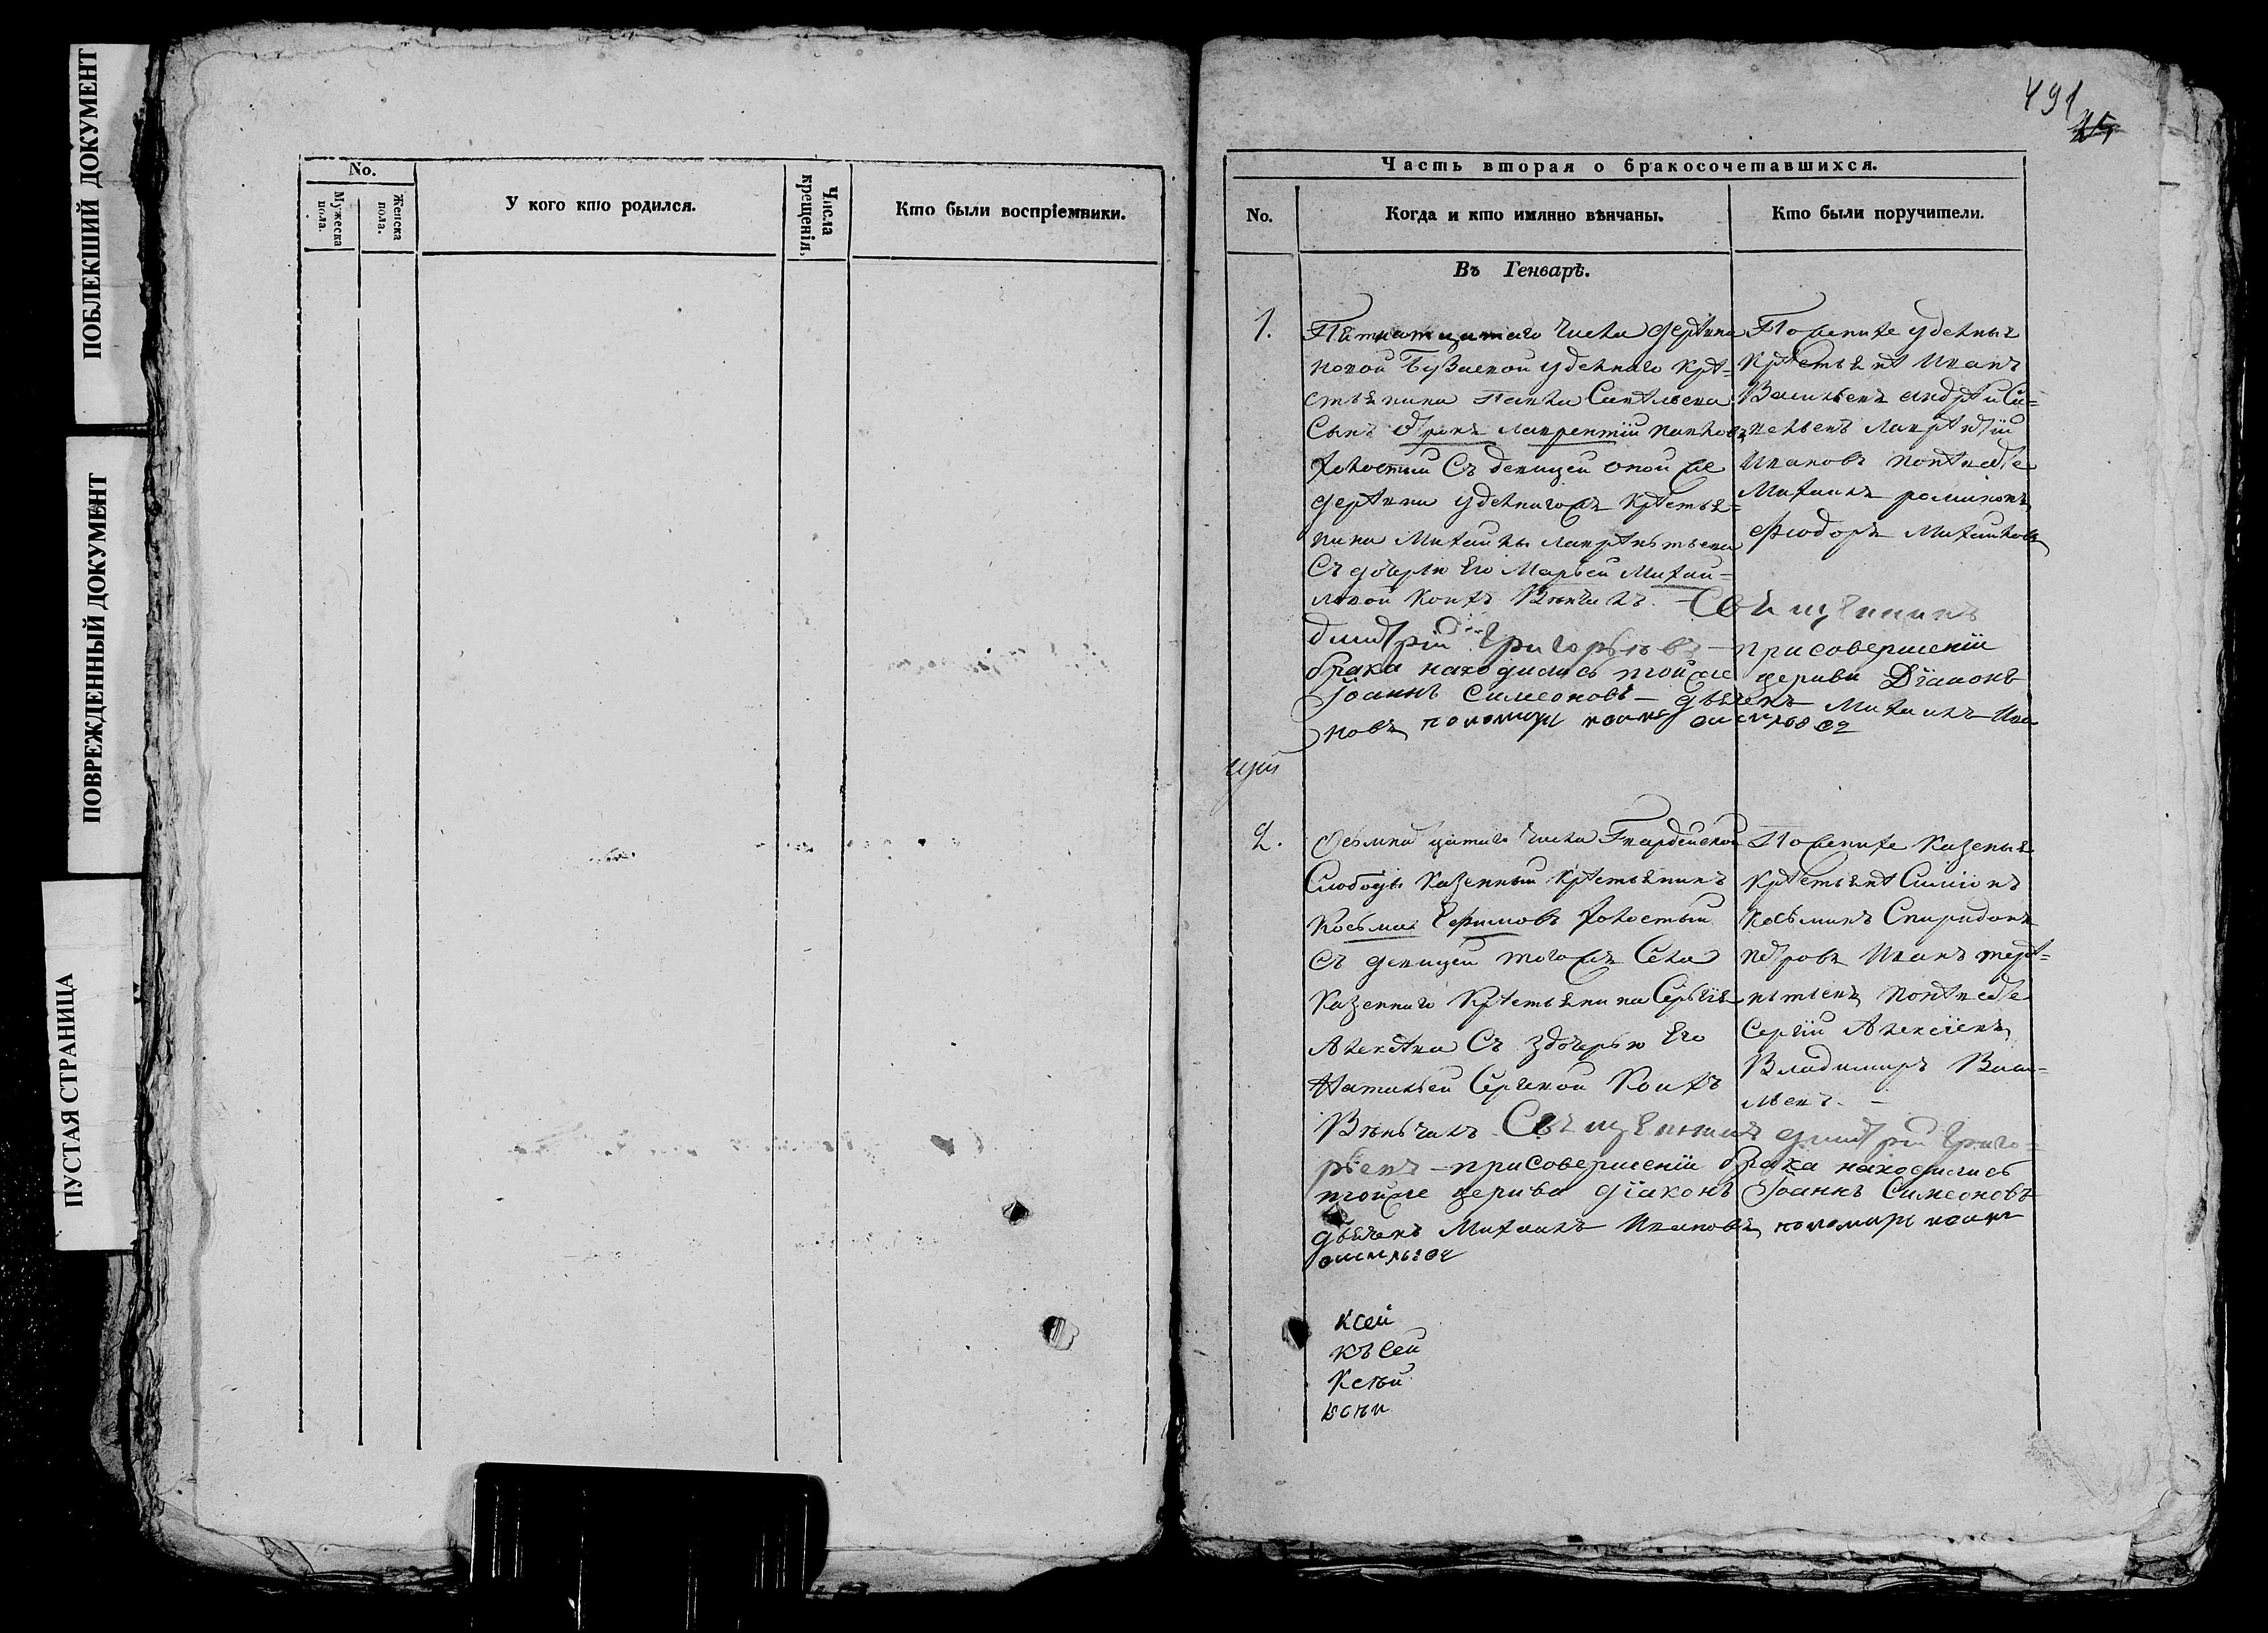 ПОБЛЕКШИЙ ДОКУМЕНТ
ПОВРЕЖДЕННЫЙ ДОКУМЕНТ
ПУСТАЯ СТРАНИЦА
No.
Мужеска пола.
Женска пола.
У кого кто родился.
Числа крещенія.
Кто были воспріемники.
491
25
Часть вторая о бракосочетавшихся.
No.
Когда и кто имянно вѣнчаны.
Кто были поручители.
Въ Генварѣ.
1.
Пятнатцатаго числа деревни
новой Бузаевой удельнаго кре=
стьянина Павла Савельева
сынъ отрокъ лаврентій павловъ
холостый съ девицей оной же
деревни удельнагожъ крестья=
нина Михаилы лаврентьева
съ дочерью Его Марьей Михай=
ловой коихъ Венчалъ. – Священникъ
димитрій Григорьевъ – присовершеніи
брака находились тойже церкви Діаконъ
Іоаннъ Симеоновъ – дьячекъ Михаилъ Ива
новъ пономарь
По женихе удельныя
крестьяне Иванъ
Васильевъ андрей Са=
вельевъ лаврентій
Ивановъ поневесте
Михаилъ романовъ
Фіодоръ Михайловъ
2.
Осьмнадцатаго числа Гвардейской
Слободы казенный крестьянинъ
Косьма Ефимовъ холостый
съ девицей тогожъ Села
Казеннаго крестьянина Сергія
Алексеева съ здочерью Его
Натальей Сергевой коихъ
Венчалъ Священникъ димитрій Григо=
рьевъ – присовершеніи брака находились
тойже церкви діаконъ Іоаннъ Симеоновъ
дьячекъ Михаилъ Ивановъ пономарь
По женихе казеныя
крестьяне Симіонъ
косьминъ Спиридонъ
петровъ Иванъ тере=
нтьевъ поневесте
Сергій Алексіевъ
Владимиръ Васи=
льевъ. –
ксей
къ сей
Ксеѣй